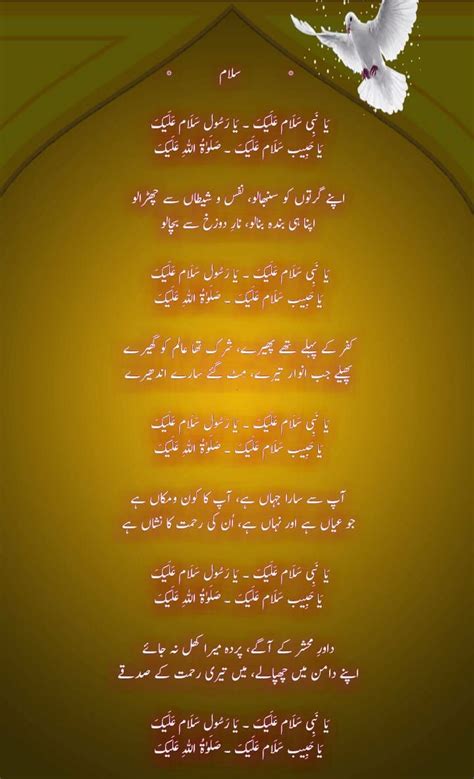 سلام
یَا نَبِی سَلَام عَلَیکَ ۔ یَا رَسُول سَلَام عَلَیکَ
یَا حَبِیب سَلَام عَلَیکَ ۔ صَلَوٰۃُ اللہِ عَلَیکَ
اپنے گرتوں کو سنبھالو، نفس و شیطاں سے چھڑالو
اپنا ہی بندہ بنالو، نارِ دوزخ سے بچالو
یَا نَبِی سَلَام عَلَیکَ ۔ یَا رَسُول سَلَام عَلَیکَ
یَا حَبِیب سَلَام عَلَیکَ ۔ صَلَوٰۃُ اللہِ عَلَیکَ
کفر کے پہلے تھے پھیرے، شرک تھا عالم کو گھیرے
پھیلے جب انوار تیرے، مٹ گئے سارے اندھیرے
یَا نَبِی سَلَام عَلَیکَ ۔ یَا رَسُول سَلَام عَلَیکَ
یَا حَبِیب سَلَام عَلَیکَ ۔ صَلَوٰۃُ اللہِ عَلَیکَ
آپ سے سارا جہاں ہے، آپ کا کون ومکاں ہے
جو عیاں ہے اور نہاں ہے، اُن کی رحمت کا نشاں ہے
یَا نَبِی سَلَام عَلَیکَ ۔ یَا رَسُول سَلَام عَلَیکَ
یَا حَبِیب سَلَام عَلَیکَ ۔ صَلَوٰۃُ اللہِ عَلَیکَ
داورِ محشر کے آگے، پردہ میرا کھل نہ جائے
اپنے دامن میں چھپالے، میں تیری رحمت کے صدقے
یَا نَبِی سَلَام عَلَیکَ ۔ یَا رَسُول سَلَام عَلَیکَ
یَا حَبِیب سَلَام عَلَیکَ ۔ صَلَوٰۃُ اللہِ عَلَیکَ